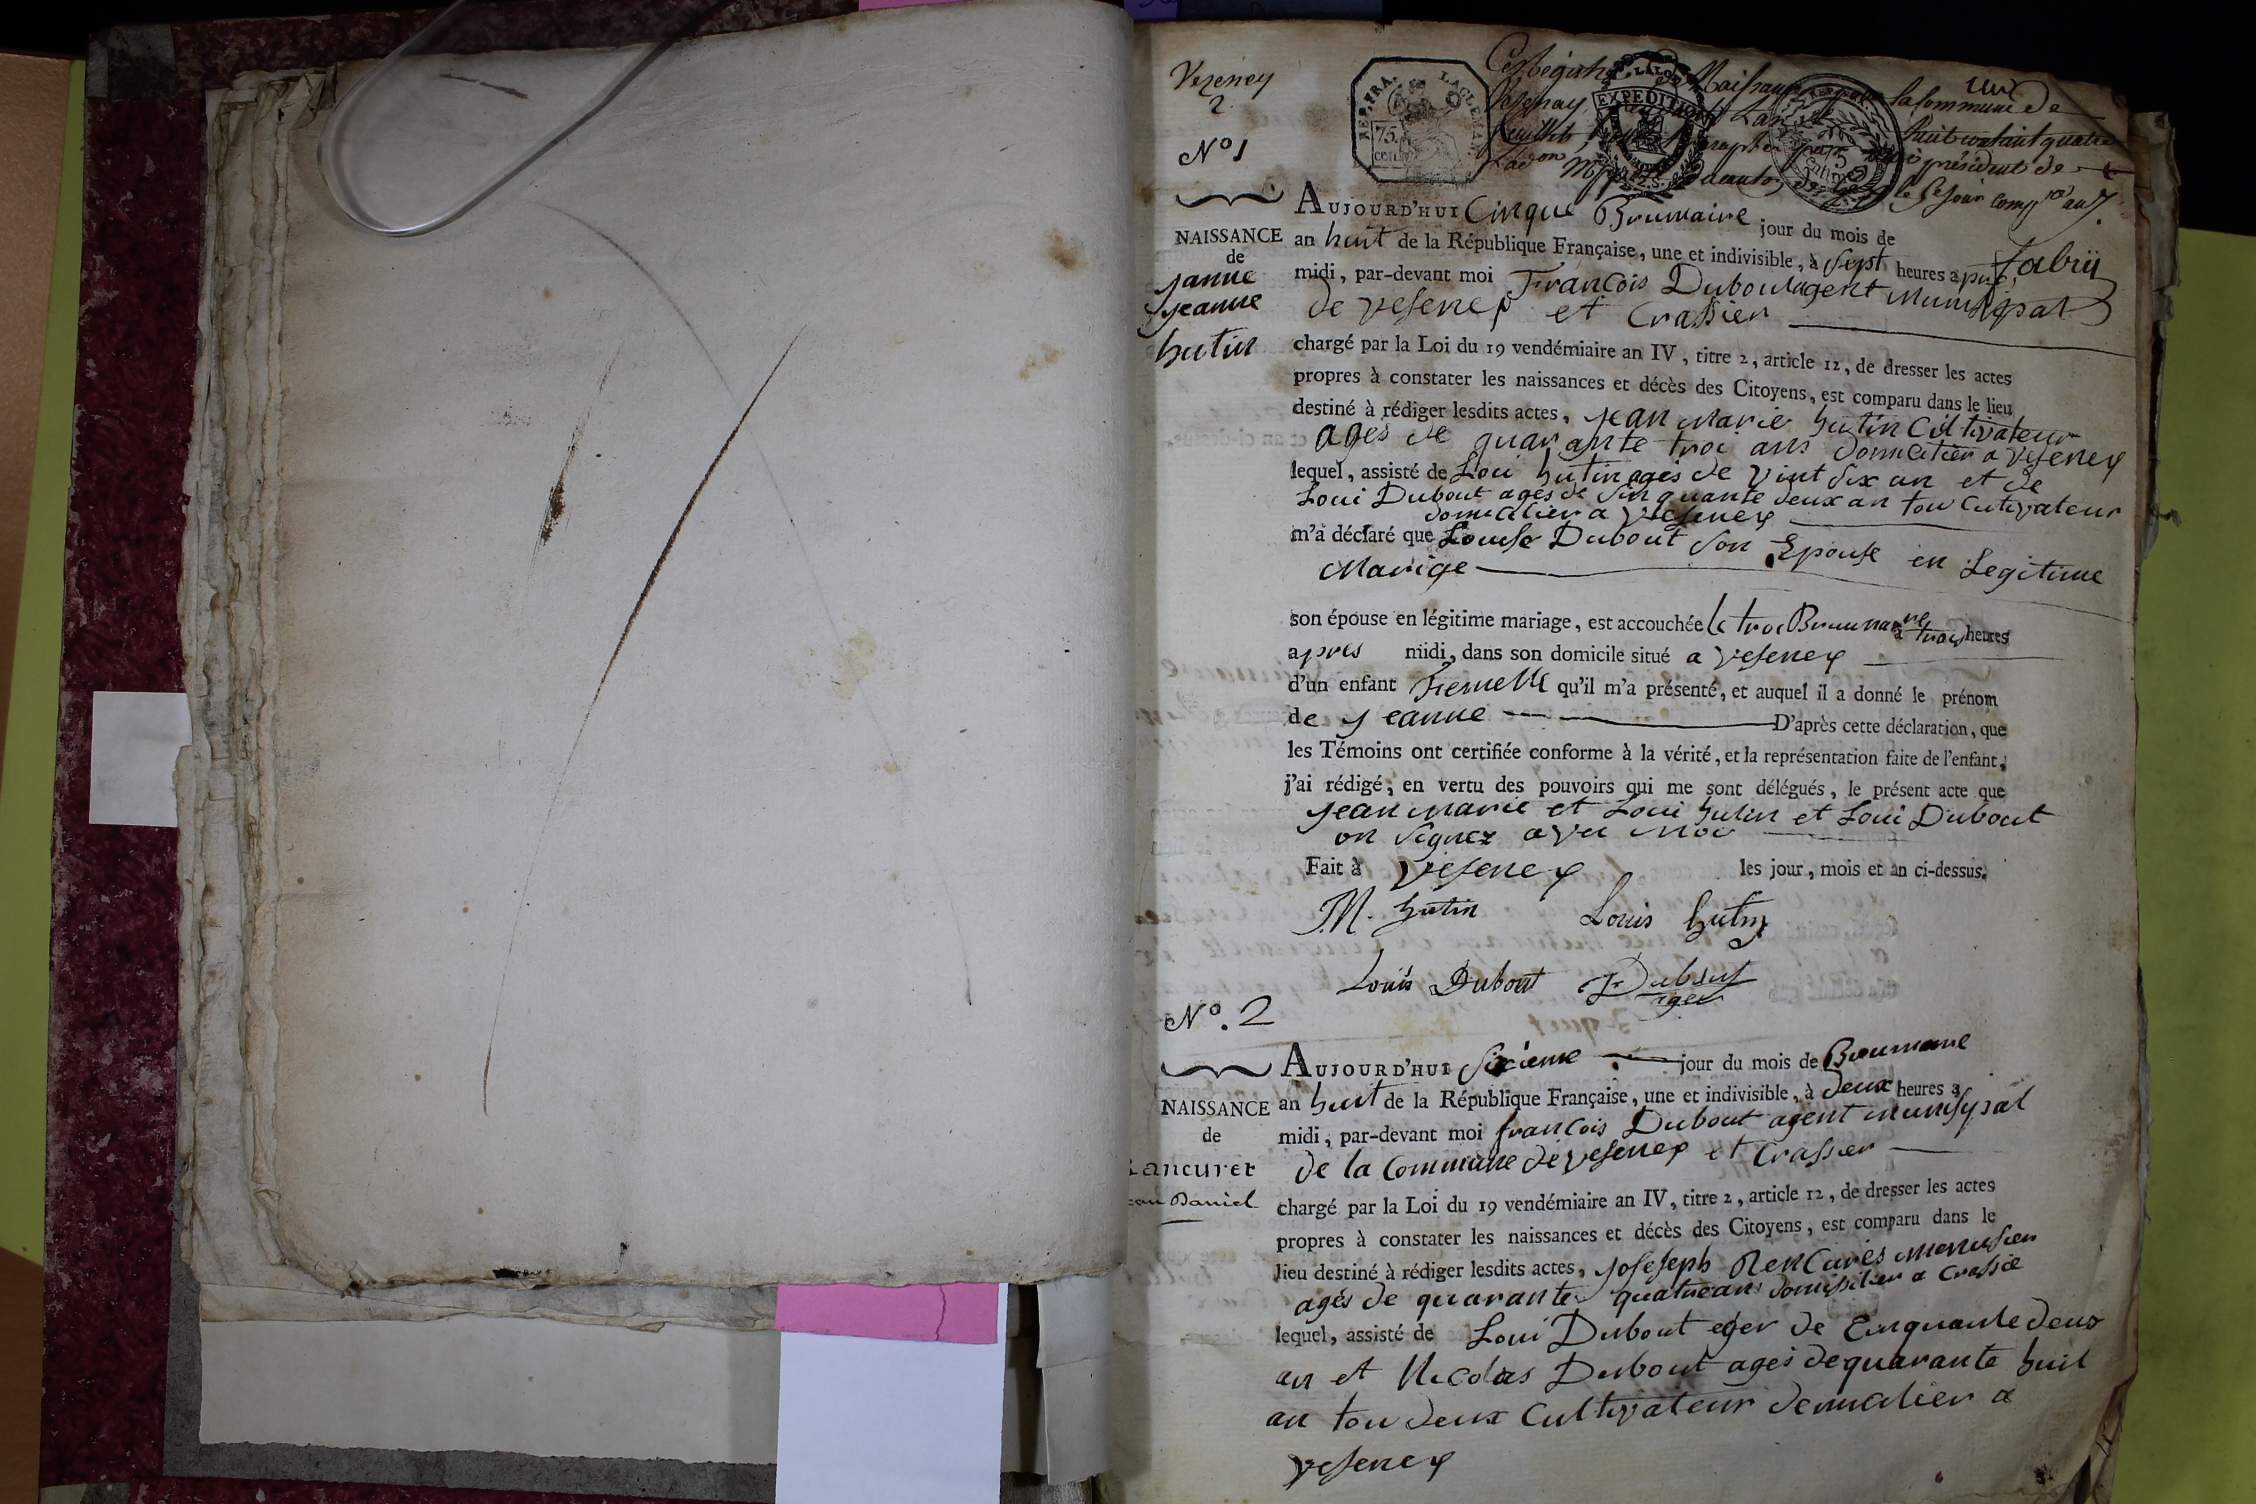 Vezeney
2
un
Ce Registre Naissance la Commune de
Vesenay huit contenant quatre
feuillets président de
le Sejour comp.re an 7.
fabry
REP. FRA.
75.
cent.
EXPEDITION
N.o 1
NAISSANCE
de
janne
jeanne
hutin
AUJOURD'HUI Cinque Brumaire jour du mois de
an huit de la République Française, une et indivisible, à sept heures apre
midi, par-devant moi francois Dubout agent munisypal
de vesenex et Crassier
chargé par la Loi du 19 vendémiaire an IV, titre 2, article 12, de dresser les actes
propres à constater les naissances et décès des Citoyens, est comparu dans le lieu
destiné à rédiger lesdits actes, jean Marie hutin Cultivateur
ages de quarante troi ans domicilier a vesenex
lequel, assisté de Loui hutin ages de vint six an et de
Loui Dubout ages de sinquante deux an tou Cutivateur
domicilier a vesenex
m'a déclaré que Louise Dubout son Epouse en Legitime
Marige
son épouse en légitime mariage, est accouchée le troi Brumaire a trois heures
apres midi, dans son domicile situé a vesenex
d'un enfant Fiemelle qu'il m'a présenté, et auquel il a donné le prénom
de jeanne D'après cette déclaration, que
les Témoins ont certifiée conforme à la vérité, et la représentation faite de l'enfant,
j'ai rédigé, en vertu des pouvoirs qui me sont délégués, le présent acte que
jean Marie et Loui hutin et Loui Dubout
on signez avec moi
Fait à vesenex les jour, mois et an ci-dessus.
J.M. hutin Louis hutin
Louis Dubout Fr Dubout
agen
N.o 2
NAISSANCE
de
Rancuret
ean Daniel
AUJOURD'HUI Sixieme jour du mois de Brumaire
an huit de la République Française, une et indivisible, à deux heures a
midi, par-devant moi francois Dubout agent munisypal
de la Commune de vesenex et Crassier
chargé par la Loi du 19 vendémiaire an IV, titre 2, article 12, de dresser les actes
propres à constater les naissances et décès des Citoyens, est comparu dans le
lieu destiné à rédiger lesdits actes, joseseph Rencures menusien
agés de quarante quatre an domisilier a Crassie
lequel, assisté de Loui Dubout eger de Cinquante deux
an et Nicolas Dubout ages de quarante huit
an tou deux Cultivateur demicilier a
vesenex